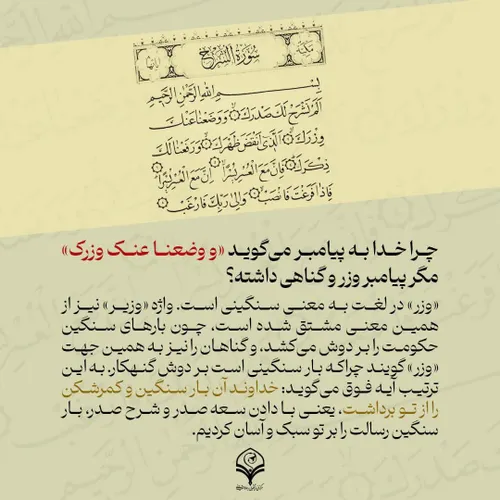 مکیة
سورة الشرح
آیاتها
بسم الله الرحمن الرحیم
ألم نشرح لك صدرك ووضعنا عنك
وزرك الذي أنقض ظهرك ورفعنا لك
ذكرك فإن مع العسر يسرا إن مع العسر يسرا
فإذا فرغت فانصب وإلى ربك فارغب
چرا خدا به پیامبر می‌گوید «و وضعنا عنک وزرک»
مگر پیامبر وزر و گناهی داشته؟
«وزر» در لغت به معنی سنگینی است. واژه «وزیر» نیز از
همین معنی مشتق شده است، چون بارهای سنگین
حکومت را بر دوش می‌کشد، و گناهان را نیز به همین جهت
«وزر» گویند چراکه بار سنگینی است بر دوش گنهکار. به این
ترتیب آیه فوق می‌گوید: خداوند آن بار سنگین و کمرشکن
را از تو برداشت، یعنی با دادن سعه صدر و شرح صدر، بار
سنگین رسالت را بر تو سبک و آسان کردیم.